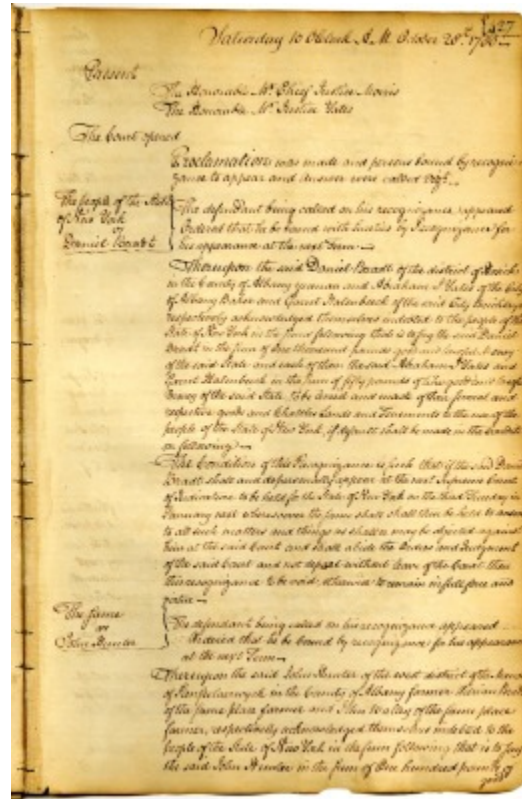 27
Saturday 10 OClock A. M. October 28th 1780
Present
The Honorable Mr. Chief Justice Morris
The Honorable Mr. Justice Yates
The Court opened
Proclamation was made and persons bound by recogni
zance to appear and answer were called
The people of the State
of New York
Daniel Bradt
The defendant being called on his recognizance appeared
Ordered that he be bound with sureties by Recognizance for
his appearance at the next Term
Thereupon the said Daniel Bradt of the district of
in the County of Albany yeoman and Abraham Yates of the City
of Albany Baker and Halenbeeck of the said City
respectively acknowledged themselves indebted to the people of the
State of New York in the sums following that is to say the said Daniel
Bradt in the sum of One thousand pounds good and lawful Money
of the said State and each of them the said Abraham Yates and
Halenbeeck in the sum of fifty pounds of like good and lawful
Money of the said State to be levied and made of their several and
respective goods and Chattles Lands and Tenements to the use of the
people of the State of New York, if default shall be made in the Condition
following
The Condition of this Recognizance is such that if the said Daniel
Bradt shall and do personally appear at the next Supreme Court
of Judicature to be held for the State of New York on the third Tuesday in
January next wheresoever the same shall then be held to answer
to all such matters and things as shall or may be objected against
him at the said Court and shall abide the Orders and Judgment
of the said Court and not depart without leave of the Court then
this recognizance to be void, otherwise to remain in full force and
virtue
The same
John Hunter
The defendant being called on his recognizance appeared
Ordered that he be bound by recognizance for his appearance
at the next Term
Thereupon the said John Hunter of the west district of the Manor
of Ranselaerwyck in the County of Albany farmer
of the same place farmer and of the same place
farmer, respectively acknowledged themselves indebted to the
people of the State of New York in the sum following that is to say
the said John Hunter in the sum of One hundred pounds of
good